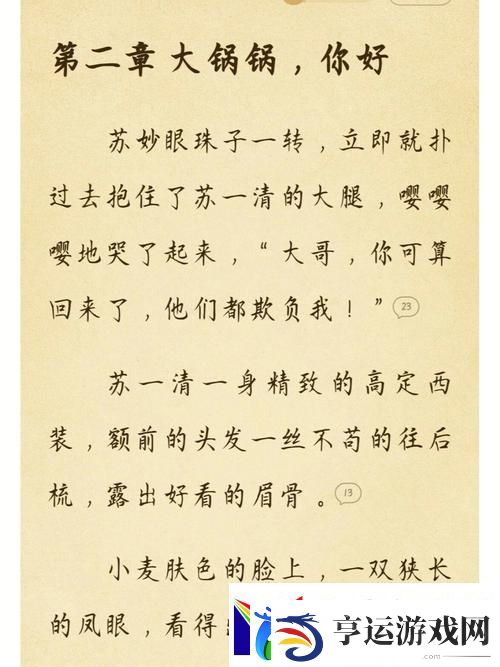 第二章 大锅锅，你好
苏妙眼珠子一转，立即就扑
过去抱住了苏一清的大腿，嘤嘤
嘤地哭了起来，“大哥，你可算
回来了，他们都欺负我！”
23
苏一清一身精致的高定西
装，额前的头发一丝不苟的往后
梳，露出好看的眉骨。
13
小麦肤色的脸上，一双狭长
的凤眼，看得
亨运游戏网